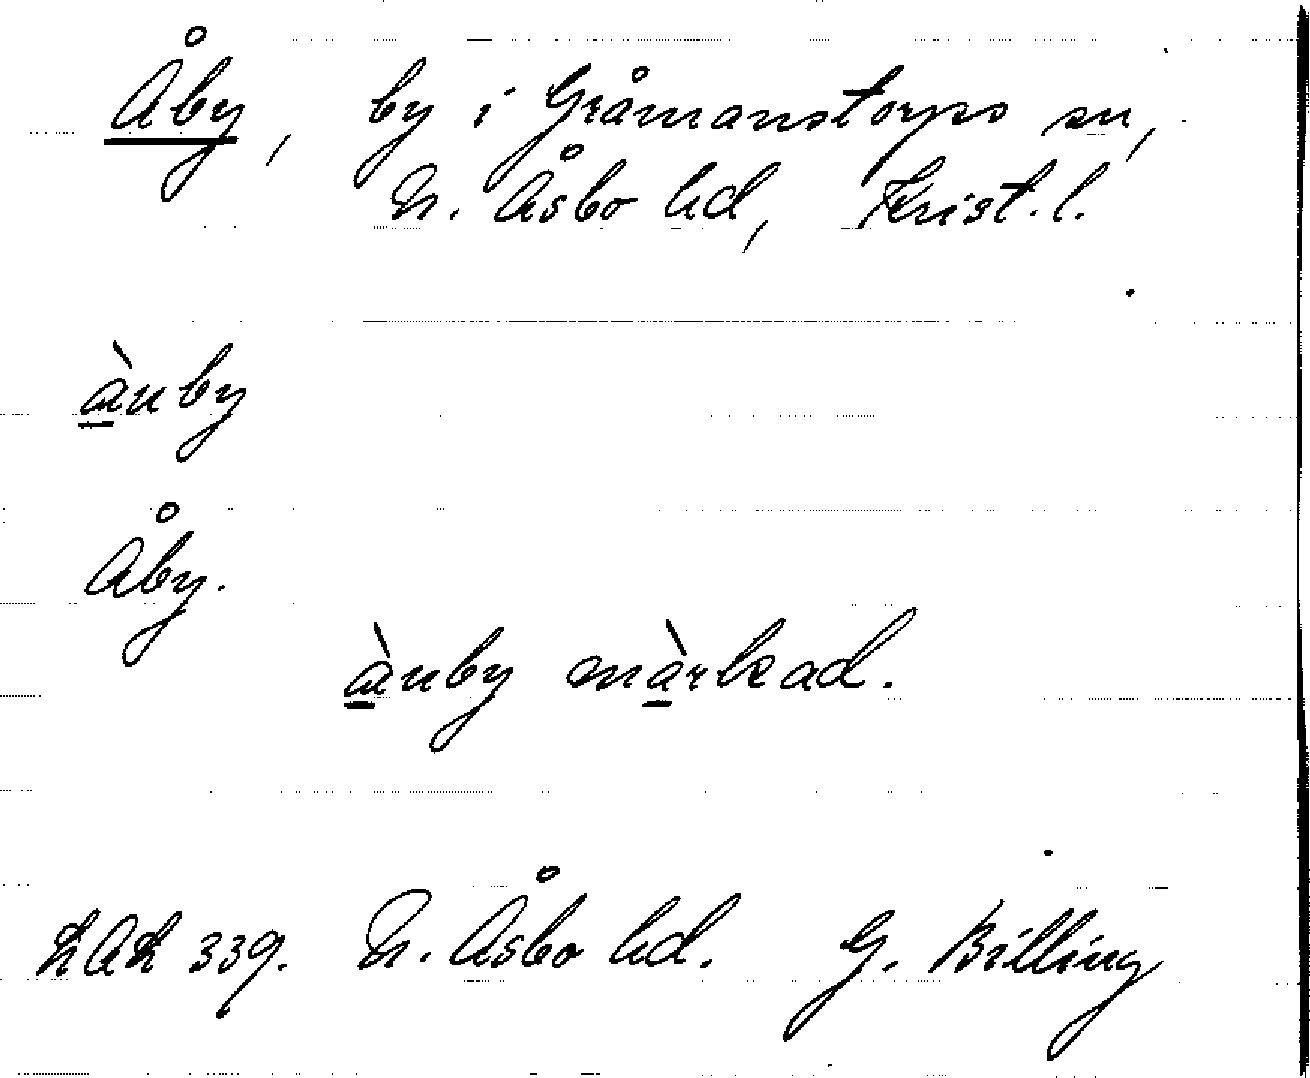 Åby, by i Gråmanstorps sn,
N. Åsbo hd, Krist. l.
àuby
Åby.
àuby màrkad.
LAL 339. N. Åsbo hd. G. Billing